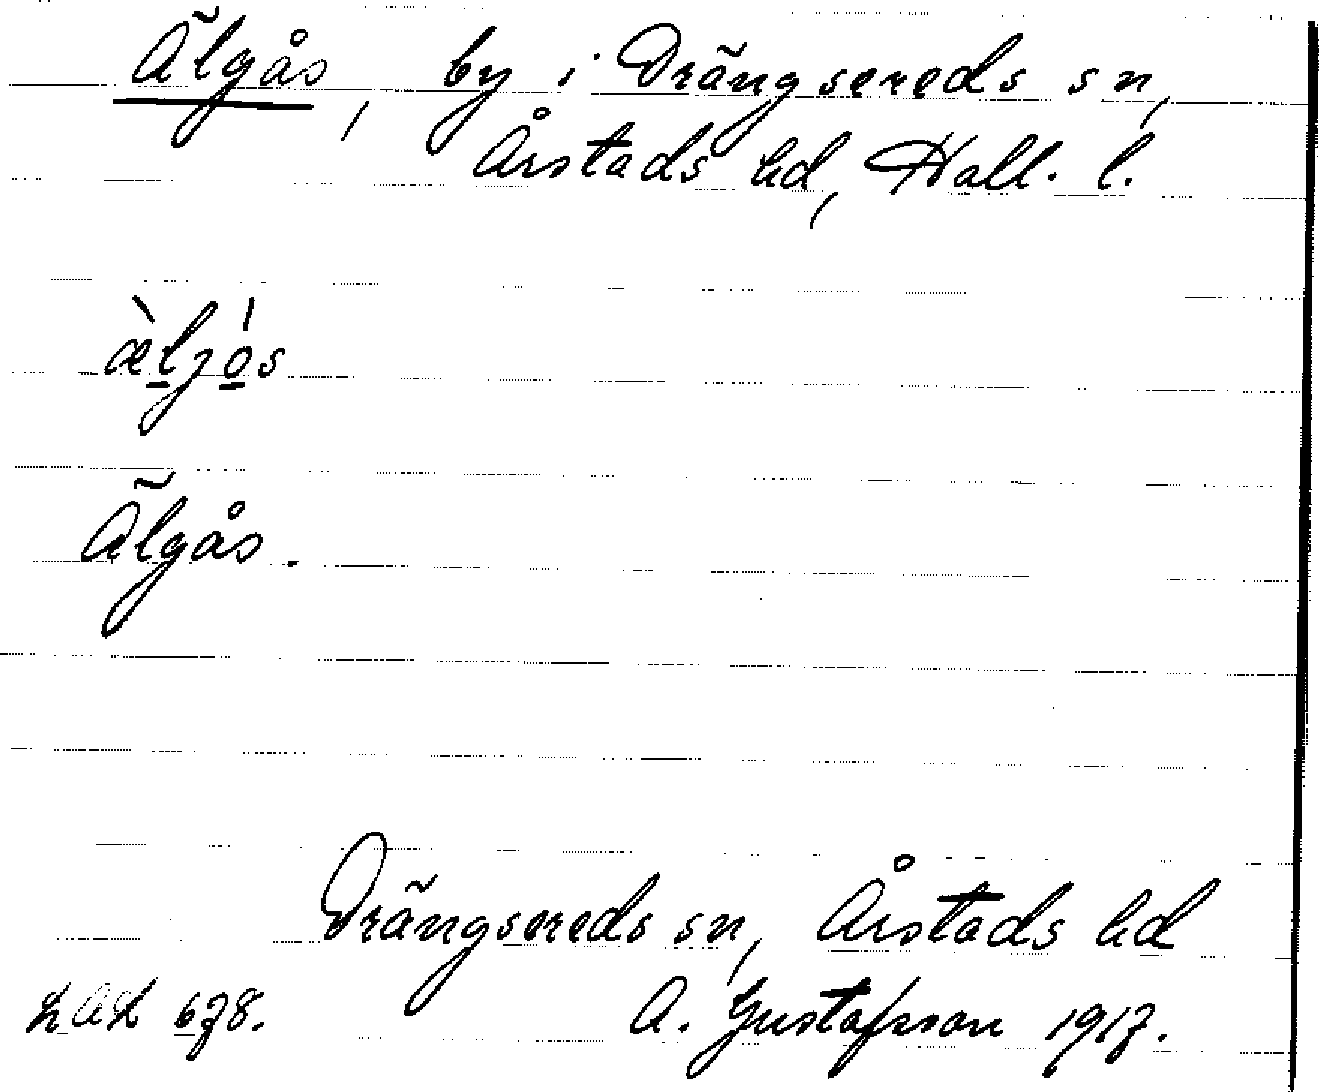 Älgås, by i Drängsereds sn,
Årstads hd, Hall. l.
æ̀ljó̠s
Älgås.
Drängsereds sn, Årstads hd
LAL 678. A. Gustafsson 1917.